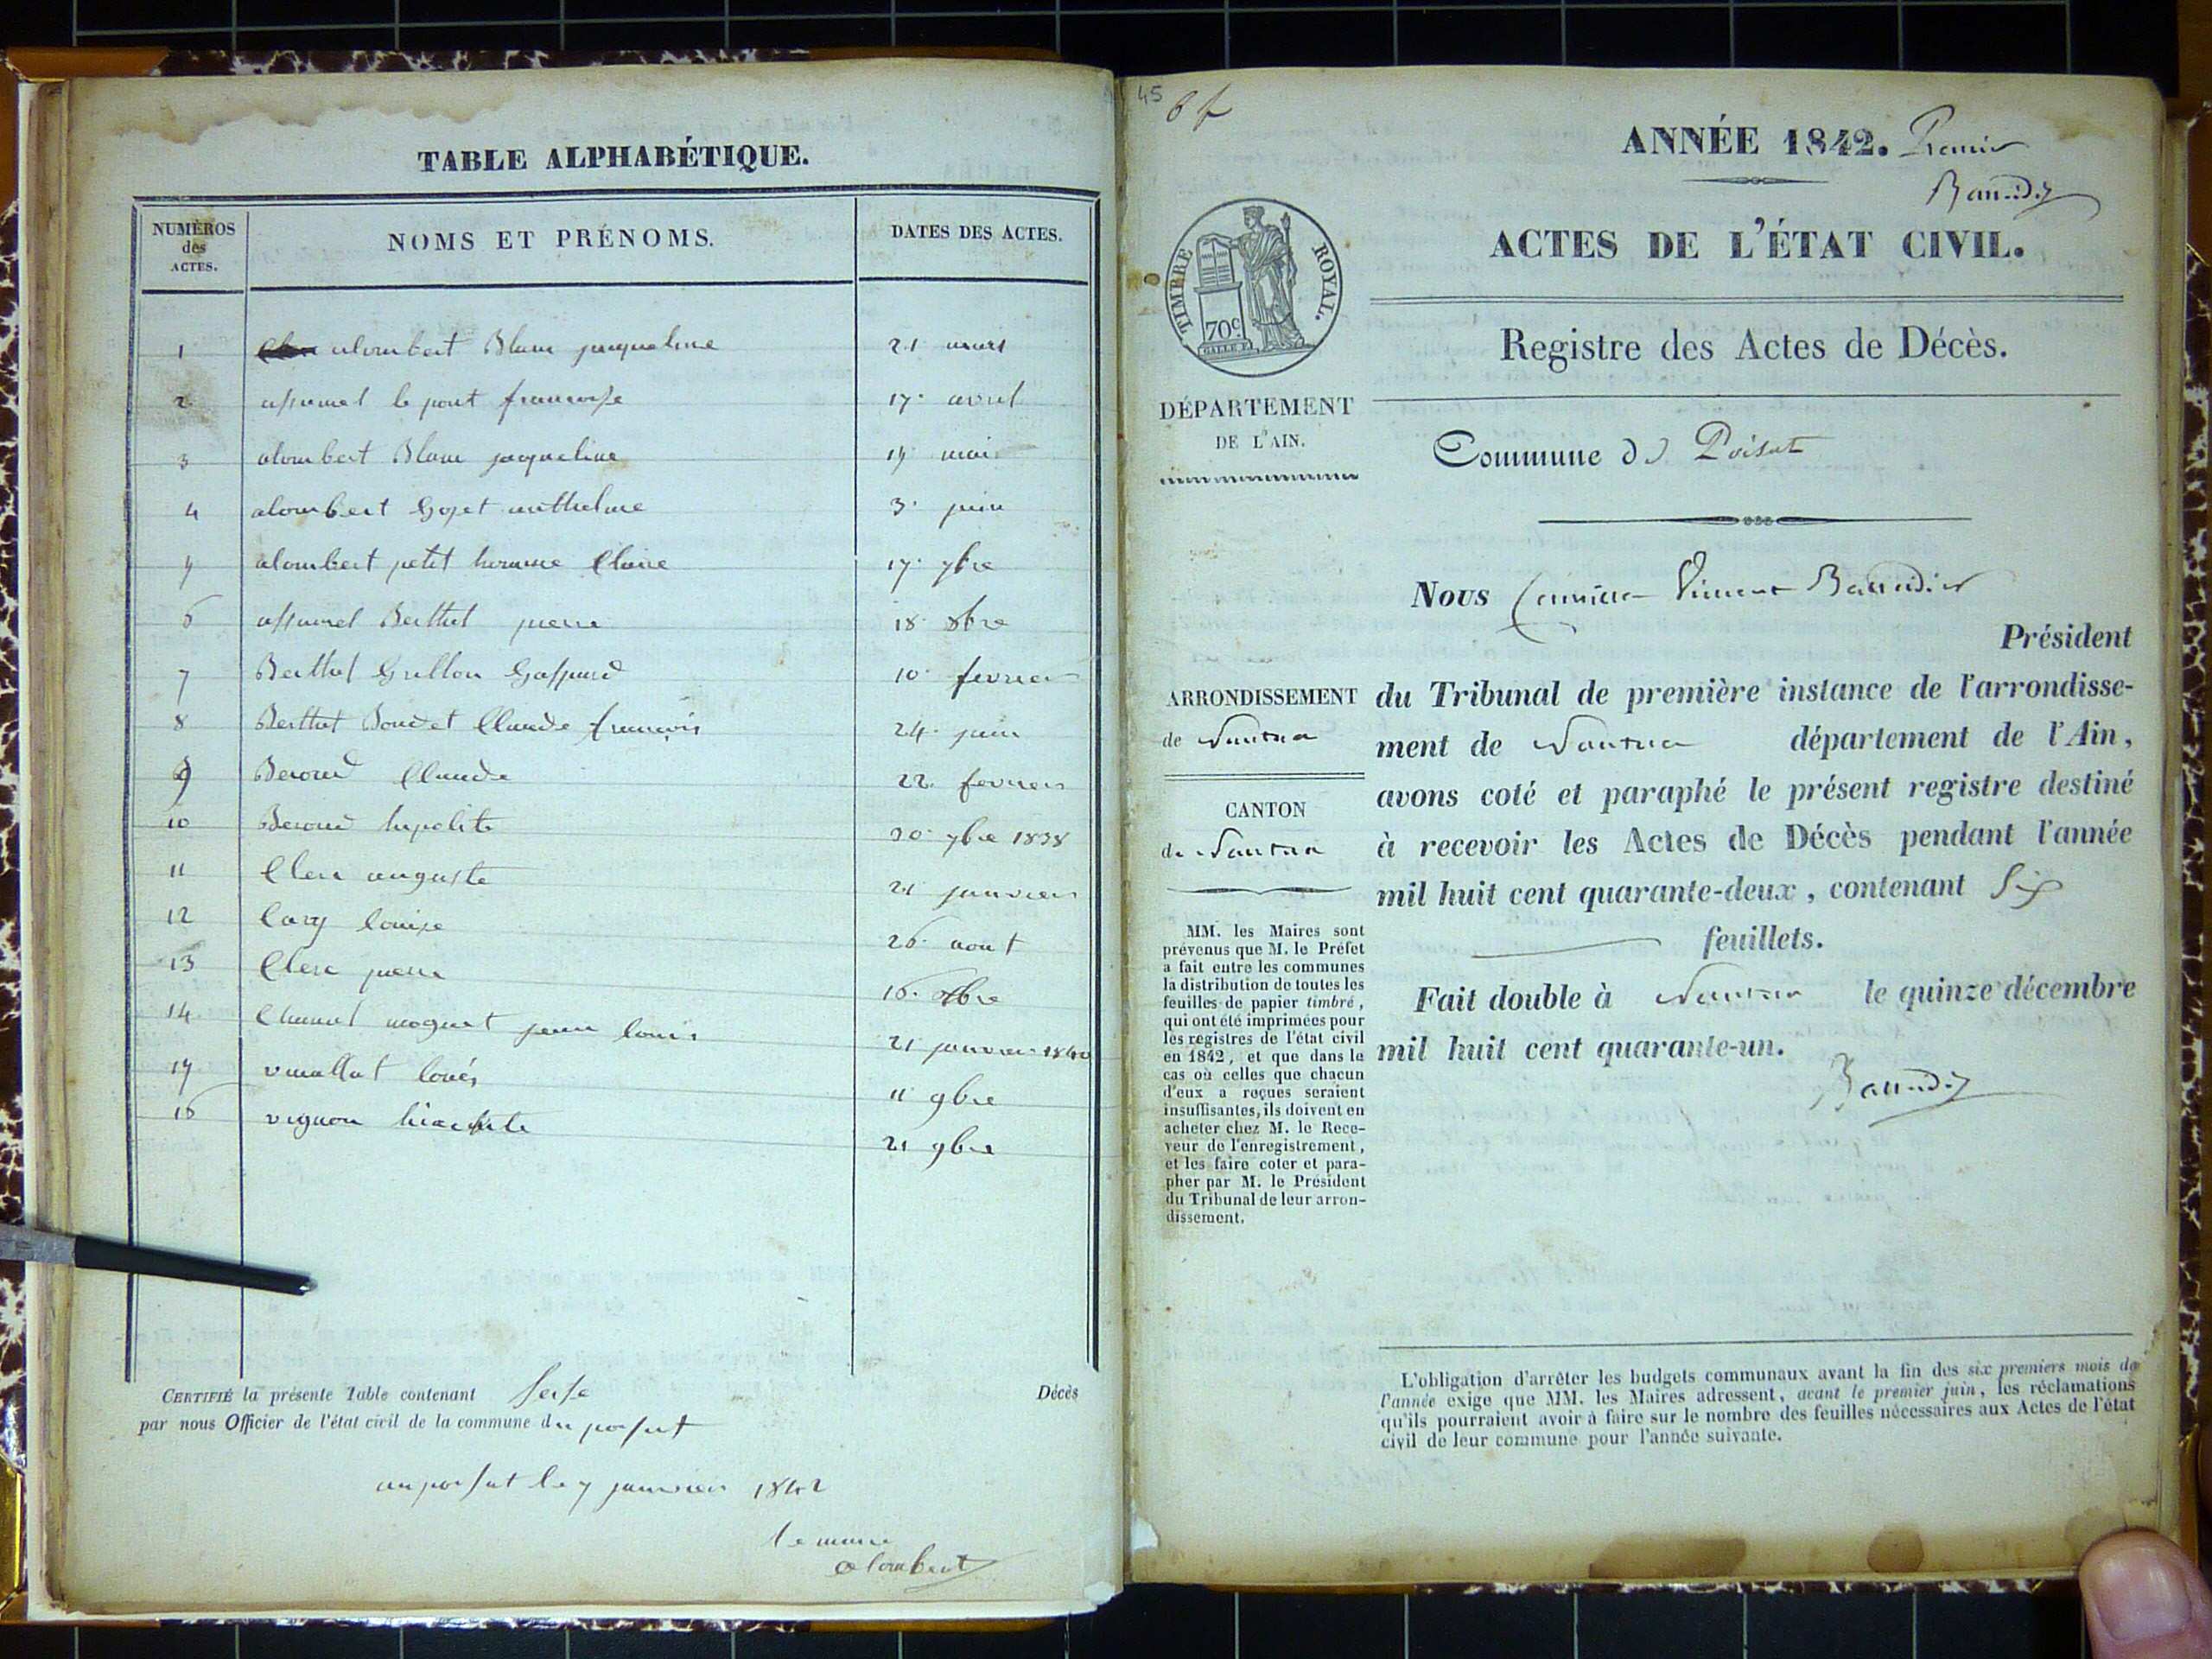 TABLE ALPHABÉTIQUE.
NUMÉROS
des
ACTES.
NOMS ET PRÉNOMS.
DATES DES ACTES.
1 alombert Blanc jacqueline 21 mars
2 assumel le pont francoise 17 avril
3 alombert Blanc jacqueline 19 mai
4 alombert Gojet 3 juin
5 alombert petit homme Claire 17 7bre
6 assumel Berthet pierre 18 8bre
7 Berthet Grillon Gaspard 10 fevrier
8 Berthet Boudet Claude francois 24 juin
9 Beroud Claude 22 fevrier
10 Beroud hipolite 20 7bre 1838
11 Clerc auguste 21 janvier
12 Cary louise 26 aout
13 Clerc pierre 16
14 jean louis 21 janvier 1840
15 vuaillat 11 9bre
16 vignon 21 9bre
CERTIFIÉ la présente Table contenant seise Décès
par nous Officier de l'état civil de la commune du poisat
au poisat le 7 janvier 1842
le maire
alombert
45
6 f
ANNÉE 1842. Premier
Baudier
ACTES DE L'ÉTAT CIVIL.
Registre des Actes de Décès.
Commune de Poisat
TIMBRE ROYAL.
70c
DÉPARTEMENT
DE L'AIN.
ARRONDISSEMENT
de Nantua
CANTON
de Nantua
MM. les Maires sont
prévenus que M. le Préfet
a fait entre les communes
la distribution de toutes les
feuilles de papier timbré,
qui ont été imprimées pour
les registres de l'état civil
en 1842, et que dans le
cas où celles que chacun
d'eux a reçues seraient
insuffisantes, ils doivent en
acheter chez M. le Rece-
veur de l'enregistrement,
et les faire coter et para-
pher par M. le Président
du Tribunal de leur arron-
dissement.
Nous Vincent Baudier
Président
du Tribunal de première instance de l'arrondisse-
ment de Nantua département de l'Ain,
avons coté et paraphé le présent registre destiné
à recevoir les Actes de Décès pendant l'année
mil huit cent quarante-deux, contenant Six
feuillets.
Fait double à Nantua le quinze décembre
mil huit cent quarante-un.
Baudier
L'obligation d'arrêter les budgets communaux avant la fin des six premiers mois de
l'année exige que MM. les Maires adressent, avant le premier juin, les réclamations
qu'ils pourraient avoir à faire sur le nombre des feuilles nécessaires aux Actes de l'état
civil de leur commune pour l'année suivante.